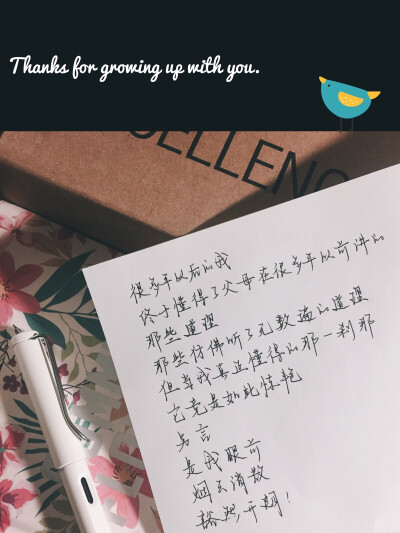 Thanks for growing up with you.
CELLENC
很多年以后的我
终于懂得了父母在很多年以前讲的
那些道理
那些仿佛听了无数遍的道理
但当我真正懂得的那一刹那
它竟是如此惊艳
名言
是我眼前
烟云消散
豁然开朗!